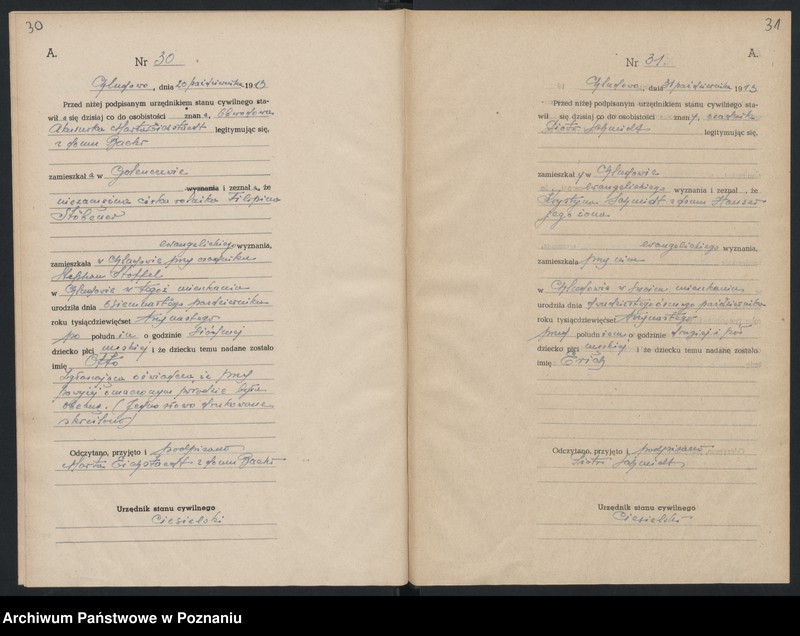 30
A.
Nr 30
, dnia 20 października 1913
Przed niżej podpisanym urzędnikiem stanu cywilnego sta-
wił a się dzisiaj co do osobistości znan a,
Marta legitymując się,
z domu
zamieszkał a w
wyznania i zeznał a, że
niezamężna córka rolnika Filipina
ewangelickiego wyznania,
zamieszkała w przy
w w tegoż mieszkaniu
urodziła dnia osiemnastego października
roku tysiącdziewięćset trzynastego
po południu o godzinie
dziecko płci męskiej i że dziecku temu nadane zostało
imię Otto
Zgłaszająca oświadcza że przy
powyżej oznaczonym porodzie była
obecną. (Jedno słowo drukowane
skreślono)
Odczytano, przyjęto i podpisano
Marta z domu
Urzędnik stanu cywilnego
Ciesielski
31
A.
Nr 31.
, dnia 31 października 1913
Przed niżej podpisanym urzędnikiem stanu cywilnego sta-
wił się dzisiaj co do osobistości znan y,
Piotr Schmidt legitymując się,
zamieszkał y w
ewangelickiego wyznania i zeznał , że
Krystyna Schmidt z domu
jego żona
ewangelickiego wyznania,
zamieszkała przy nim
w w swoim mieszkaniu
urodziła dnia października
roku tysiącdziewięćset trzynastego
przed południem o godzinie drugiej i pół
dziecko płci męskiej i że dziecku temu nadane zostało
imię Erich
Odczytano, przyjęto i podpisano
Piotr Schmidt
Urzędnik stanu cywilnego
Ciesielski
Archiwum Państwowe w Poznaniu